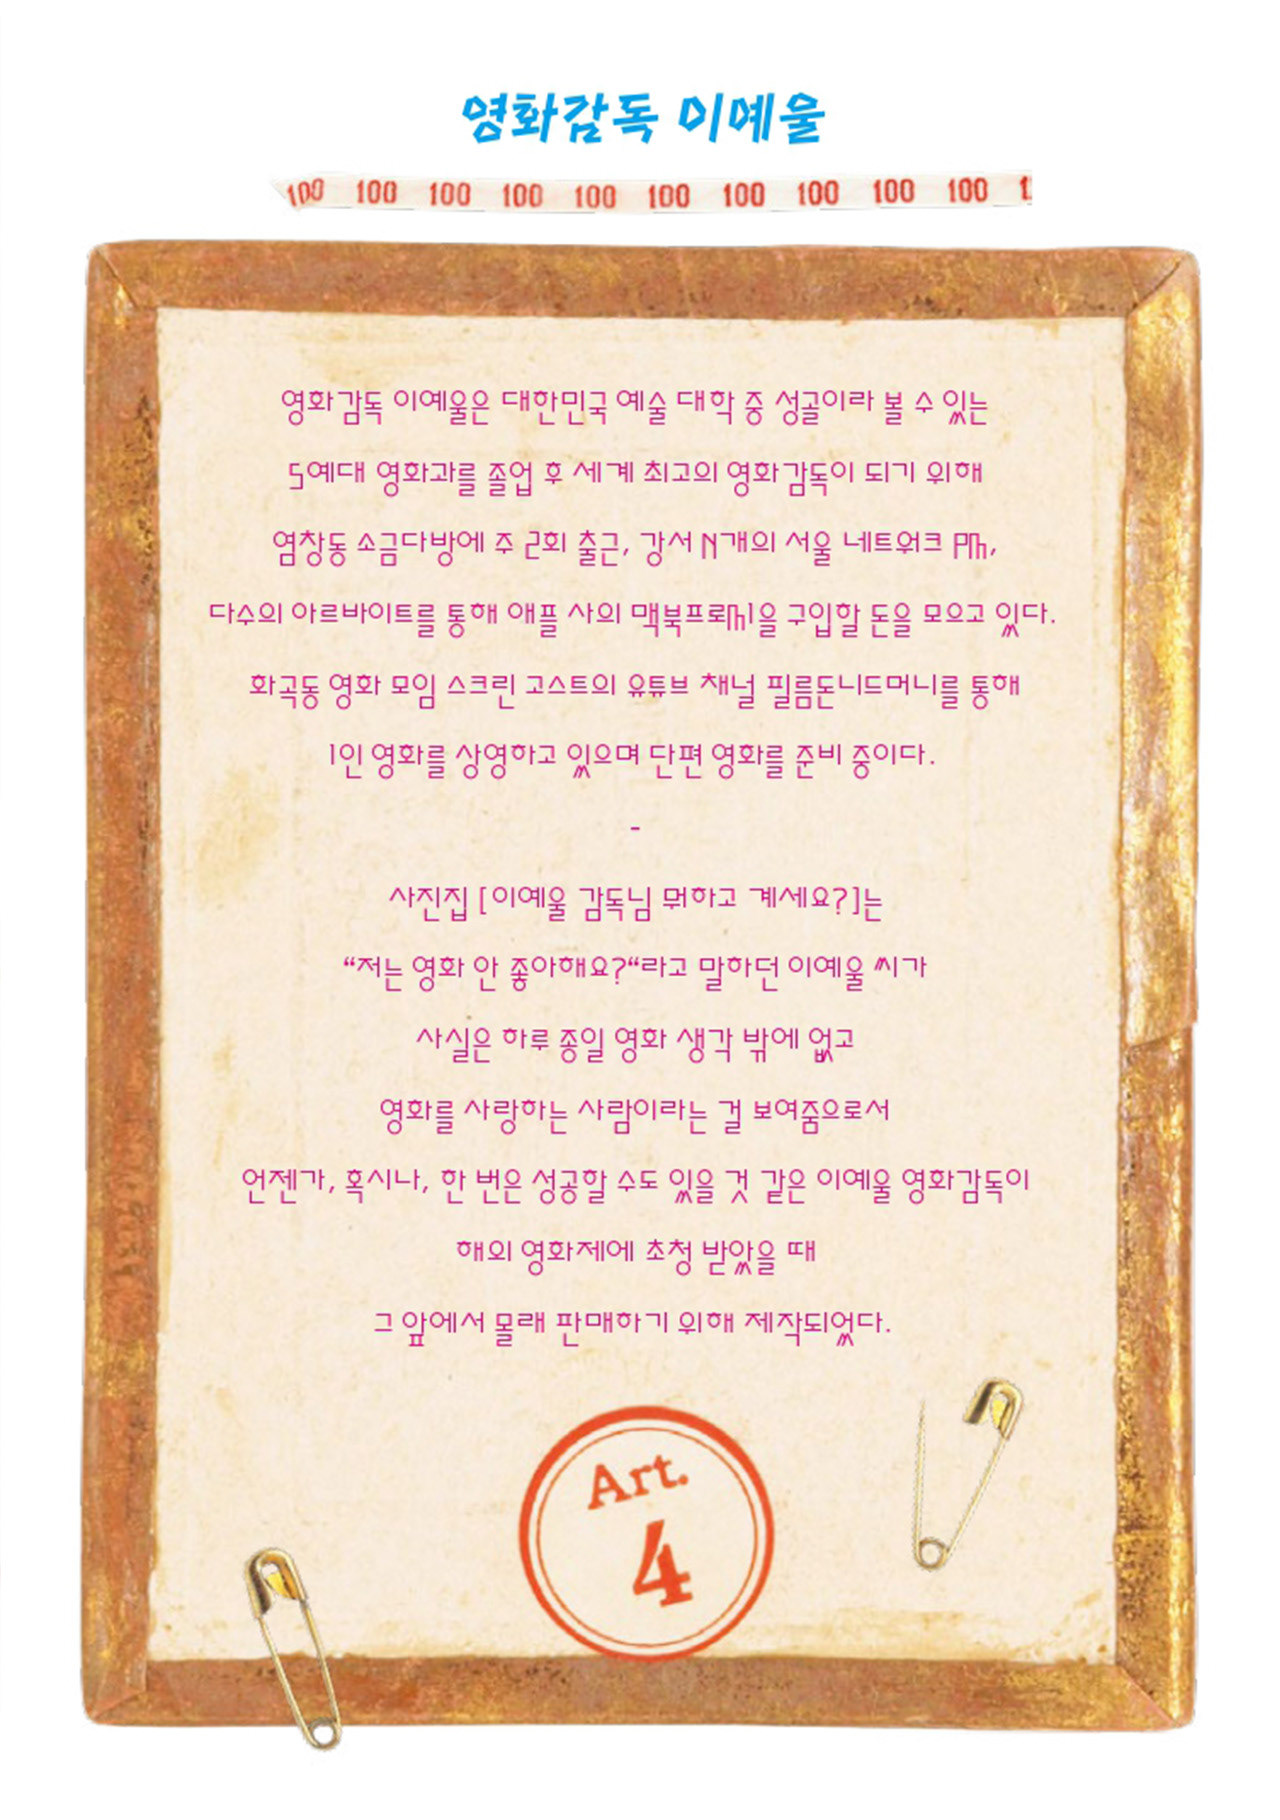 영화감독 이예울
100 100 100 100 100 100 100 100 100 100 1
영화감독 이예울은 대한민국 예술 대학 중 성골이라 볼 수 있는
S예대 영화과를 졸업 후 세계 최고의 영화감독이 되기 위해
염창동 소금다방에 주 2회 출근, 강서 N개의 서울 네트워크 PM,
다수의 아르바이트를 통해 애플 사의 맥북프로M1을 구입할 돈을 모으고 있다.
화곡동 영화 모임 스크린 고스트의 유튜브 채널 필름돈니드머니를 통해
1인 영화를 상영하고 있으며 단편 영화를 준비 중이다.
-
사진집 [이예울 감독님 뭐하고 계세요?]는
“저는 영화 안 좋아해요?“라고 말하던 이예울 씨가
사실은 하루 종일 영화 생각 밖에 없고
영화를 사랑하는 사람이라는 걸 보여줌으로서
언젠가, 혹시나, 한 번은 성공할 수도 있을 것 같은 이예울 영화감독이
해외 영화제에 초청 받았을 때
그 앞에서 몰래 판매하기 위해 제작되었다.
Art.
4